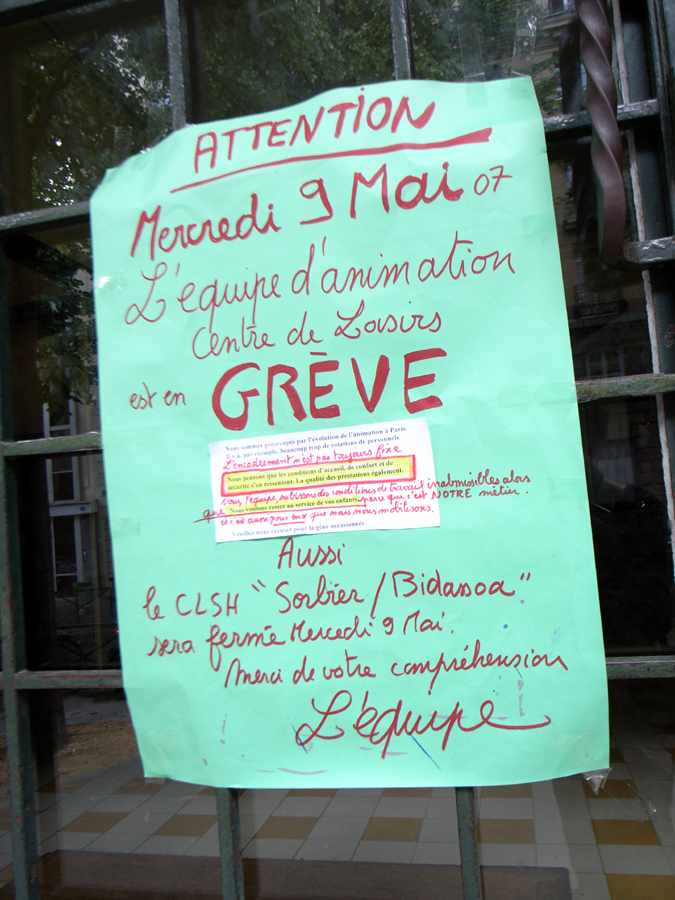 ATTENTION
Mercredi 9 Mai 07
L'équipe d'animation
Centre de Loisirs
est en GRÈVE
Nous sommes préoccupés par l'évolution de l'animation à Paris.
Il y a, par exemple, beaucoup trop de rotations de personnels.
L'encadrement n'est pas toujours fixe
Nous pensons que les conditions d'accueil, de confort et de
sécurité s'en ressentent. La qualité des prestations également.
Nous, l'équipe, subissons des conditions de travail inadmissibles alors
que Nous voulons rester au service de vos enfants, parce que c'est NOTRE métier.
et c'est aussi pour eux que nous nous mobilisons.
Veuillez nous excuser pour la gêne occasionnée.
Aussi
le CLSH "Sorbier / Bidassoa"
sera fermée Mercredi 9 Mai.
Merci de votre compréhension
L'équipe